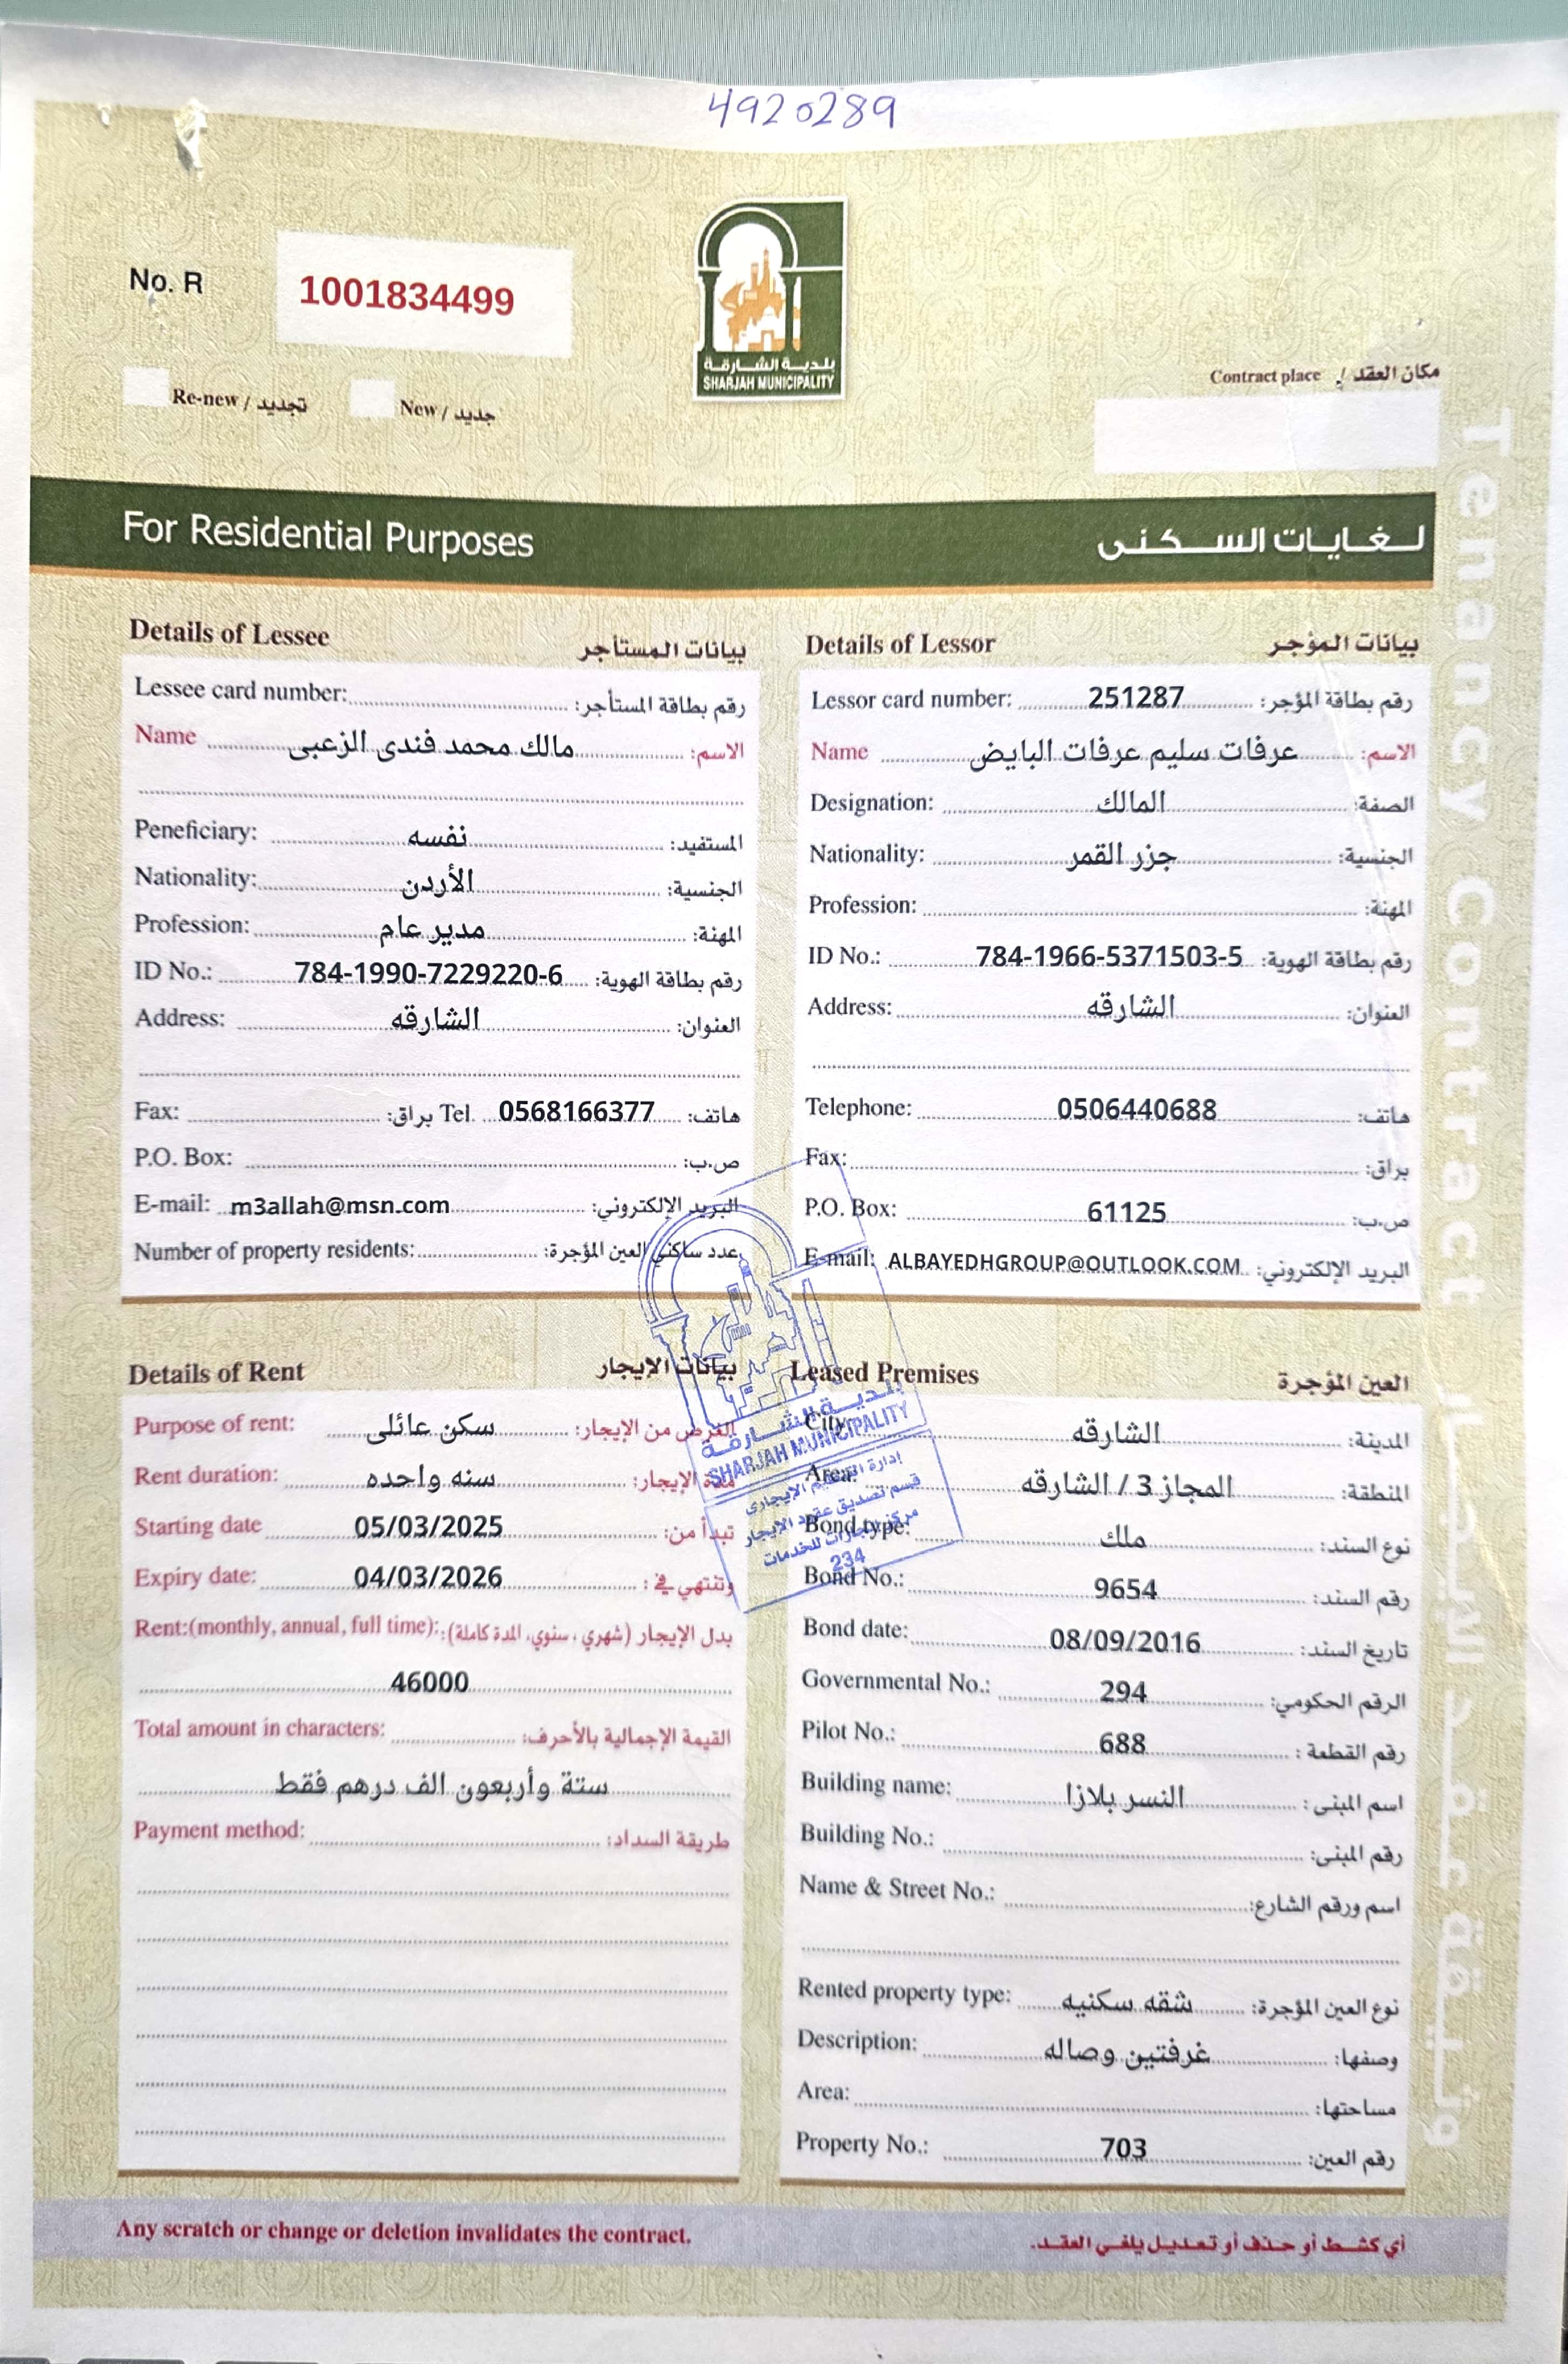 4920289
No. R 1001834499
بلدية الشارقة
SHARJAH MUNICIPALITY
Re-new / تجديد New / جديد
Contract place / مكان العقد
For Residential Purposes لغايات السكنى
Tenancy Contract
Details of Lessee بيانات المستأجر
Lessee card number: رقم بطاقة المستأجر:
Name مالك محمد فندى الزعبى الاسم:
Peneficiary: نفسه المستفيد:
Nationality: الأردن الجنسية:
Profession: مدير عام المهنة:
ID No.: 784-1990-7229220-6 رقم بطاقة الهوية:
Address: الشارقه العنوان:
Fax: براق: Tel 0568166377 هاتف:
P.O. Box: ص.ب:
E-mail: m3allah@msn.com البريد الإلكتروني:
Number of property residents: عدد ساكني العين المؤجرة:
Details of Lessor بيانات المؤجر
Lessor card number: 251287 رقم بطاقة المؤجر:
Name عرفات سليم عرفات البايض الاسم:
Designation: المالك الصفة:
Nationality: جزر القمر الجنسية:
Profession: المهنة:
ID No.: 784-1966-5371503-5 رقم بطاقة الهوية:
Address: الشارقه العنوان:
Telephone: 0506440688 هاتف:
Fax: براق:
P.O. Box: 61125 ص.ب:
E-mail: ALBAYEDHGROUP@OUTLOOK.COM البريد الإلكتروني:
Details of Rent بيانات الإيجار
Purpose of rent: سكن عائلى الغرض من الإيجار:
Rent duration: سنه واحده مدة الإيجار:
Starting date 05/03/2025 تبدأ من:
Expiry date: 04/03/2026 وتنتهي في :
Rent:(monthly, annual, full time): بدل الإيجار (شهري ، سنوي، المدة كاملة):
46000
Total amount in characters: القيمة الإجمالية بالأحرف:
ستة وأربعون الف درهم فقط
Payment method: طريقة السداد:
بلدية الشارقة
SHARJAH MUNICIPALITY
إدارة التنظيم الايجارى
قسم تصديق عقود الايجار
للخدمات
234
Leased Premises العين المؤجرة
City: الشارقه المدينة:
Area: المجاز 3 / الشارقه المنطقة:
Bond type: ملك نوع السند:
Bond No.: 9654 رقم السند:
Bond date: 08/09/2016 تاريخ السند:
Governmental No.: 294 الرقم الحكومي:
Pilot No.: 688 رقم القطعة :
Building name: النسر بلازا اسم المبنى :
Building No.: رقم المبنى:
Name & Street No.: اسم ورقم الشارع:
Rented property type: شقه سكنيه نوع العين المؤجرة:
Description: غرفتين وصاله وصفها:
Area: مساحتها:
Property No.: 703 رقم العين:
Any scratch or change or deletion invalidates the contract. أي كشط أو حذف أو تعديل يلغي العقد.